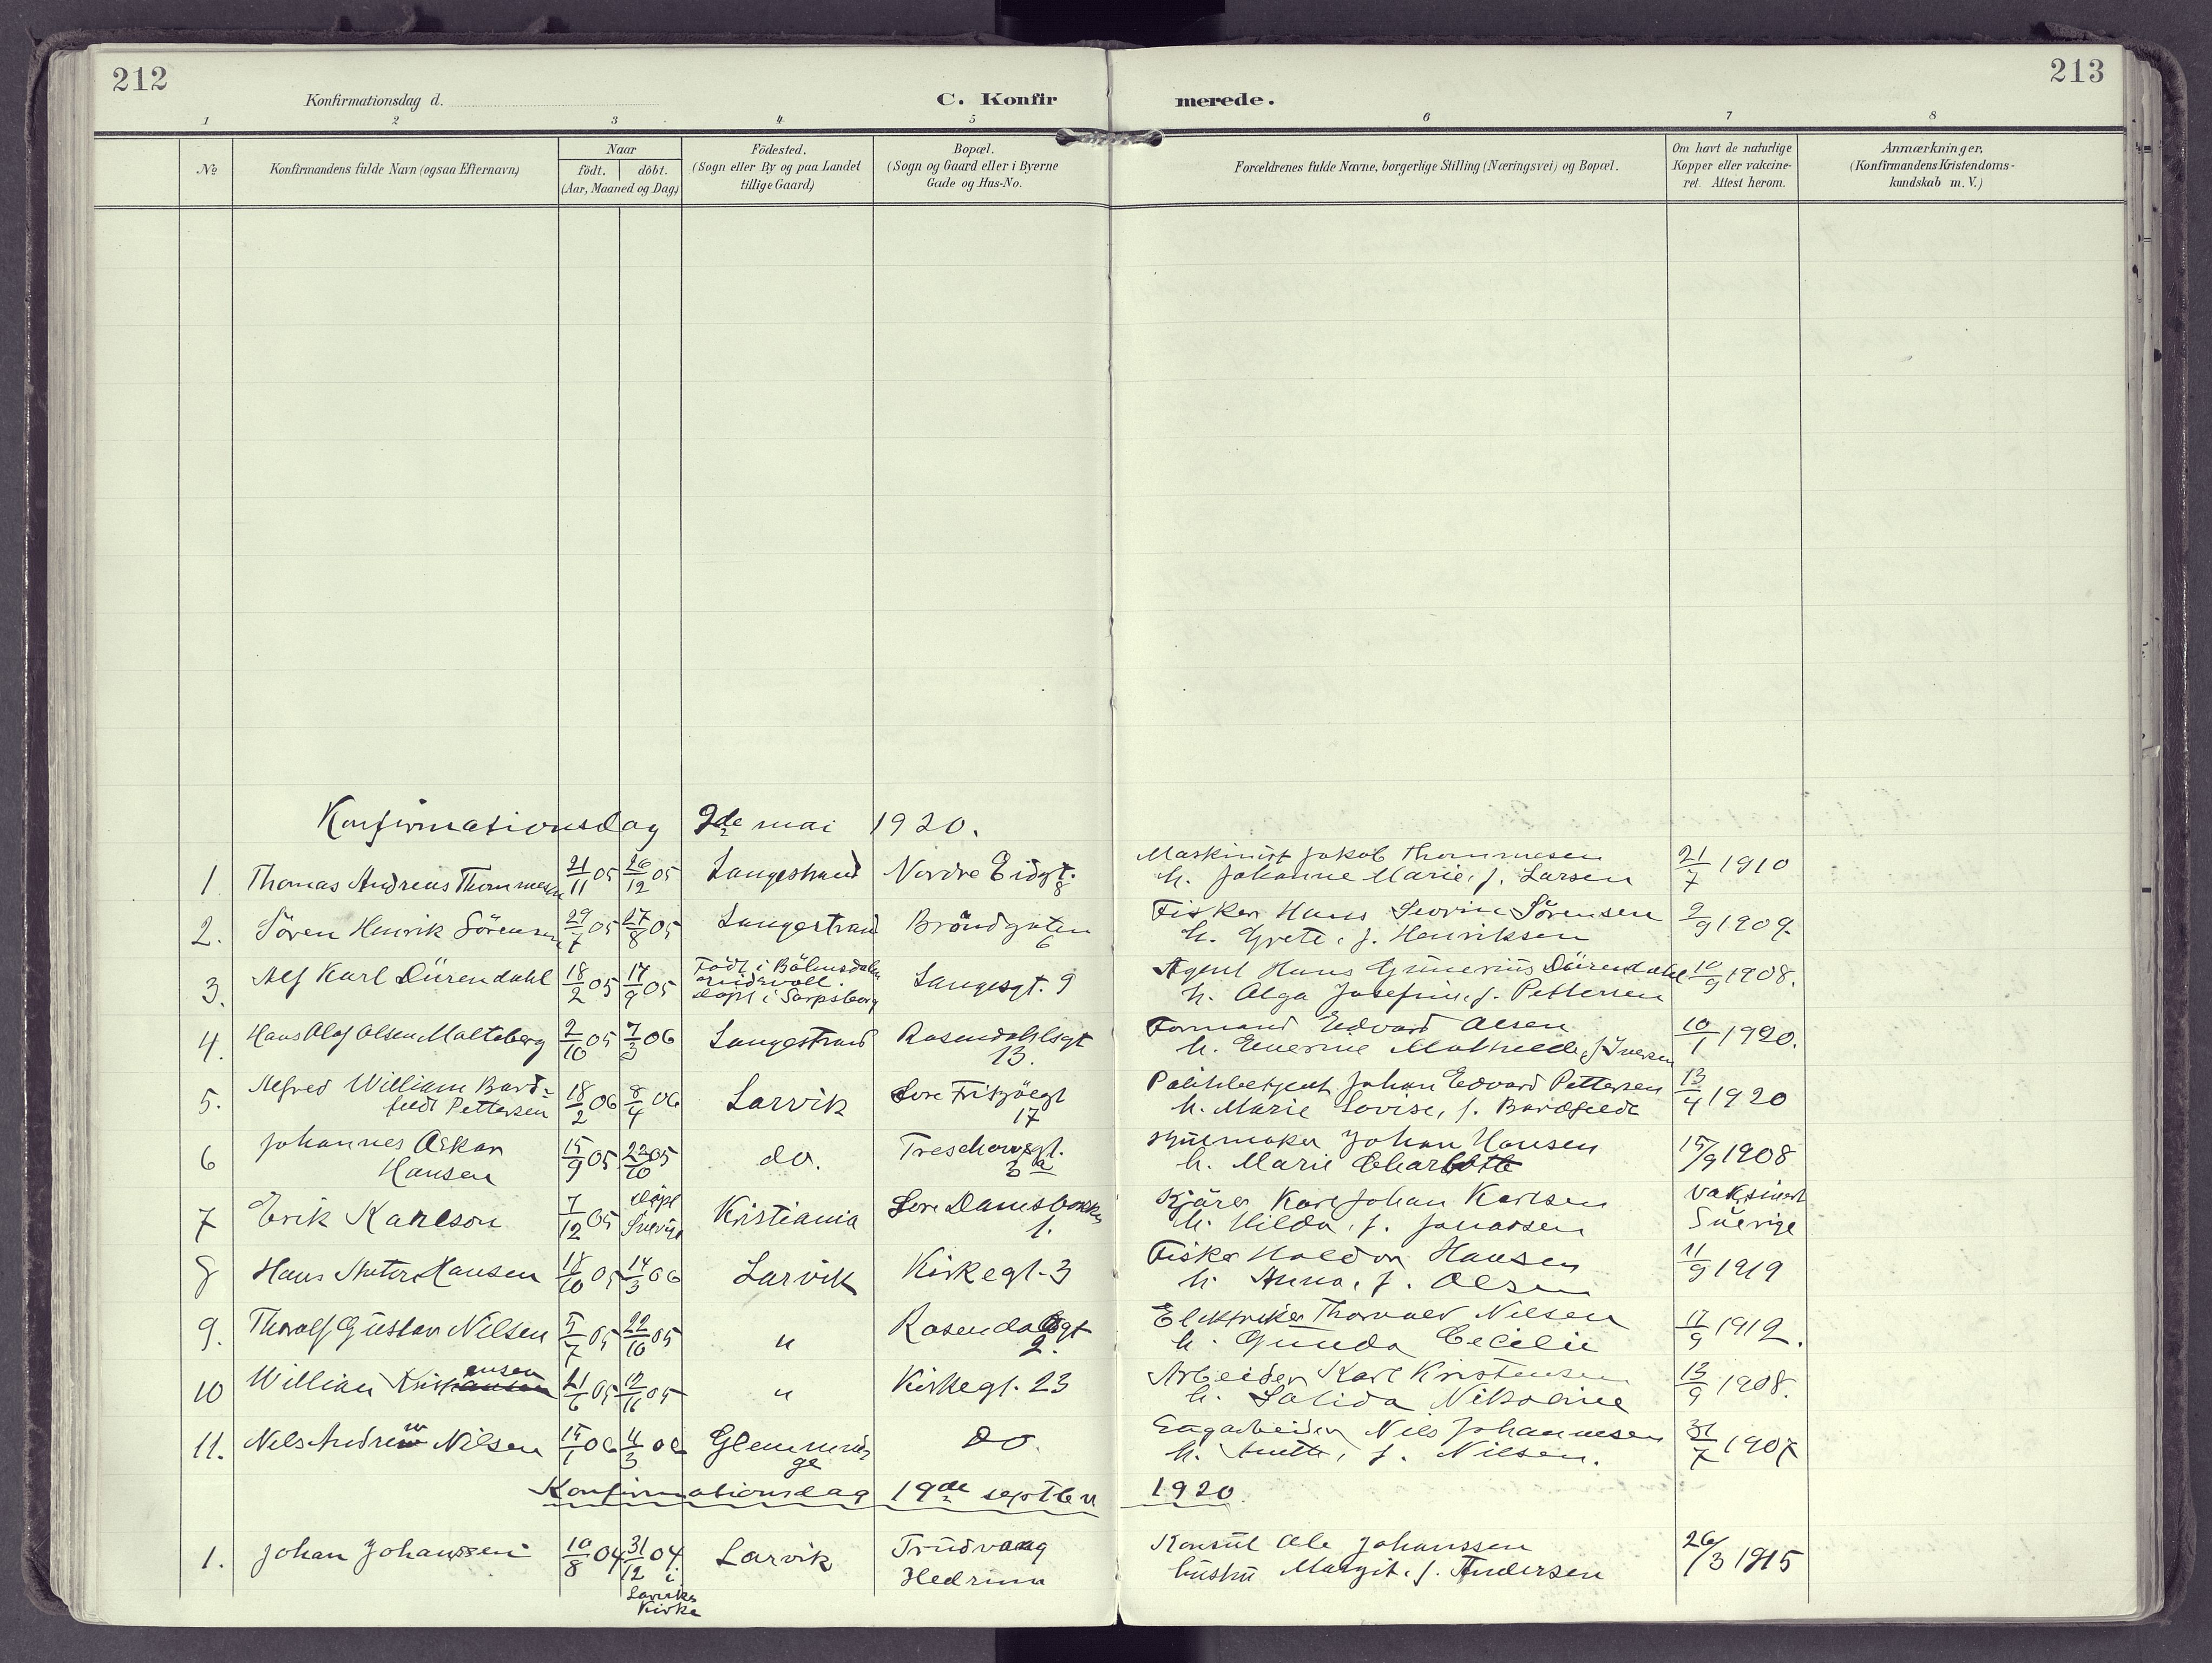 212
213
Konfirmationsdag d.
C. Konfirmerede.
1 2 3 4 5 6 7 8
No
Konfirmandens fulde Navn (ogsaa Efternavn)
Naar
födt. döbt.
(Aar, Maaned og Dag)
Födested.
(Sogn eller By og paa Landet
tillige Gaard)
Bopæl.
(Sogn og Gaard eller i Byerne
Gade og Hus-No.
Forældrenes fulde Navne, borgerlige Stilling (Næringsvei) og Bopæl.
Om havt de naturlige
Kopper eller vakcine-
ret. Attest herom.
Anmærkninger.
(Konfirmandens Kristendoms-
kundskab m. V.)
Konfirmationsdag 2de mai 1920.
1 Thomas Andreas Thommesen 21/11 05 26/12 05 Langestrand Nordre Eidgt. 8 Maskinist Jakob Thommesen
h. Johanne Marie, f. Larsen 21/7 1910
2. Sören Henrik Sörensen 29/7 05 27/8 05 Langestrand Bröndgaten 6 Fisker Hans Severin Sörensen
h. Grete, f. Henriksen 2/9 1909.
3. Alf Karl Dürendahl 18/2 05 17/9 05 Födt i
döpt i Sarpsborg Langesgt. 9 Agent Hans Gunerius Dürendahl
h. Olga Josefine, f. Pettersen 10/9 1908.
4. Hans Olaf Olsen Malteberg 2/10 05 7/3 06 Langestrand Rosendahlsgt 13. Formand Edvard Olsen
h. Mathilde, f. Iversen 10/1 1920.
5. Alfred William Bard-
feldt Pettersen 18/2 06 8/4 06 Larvik Store Fritzöegt 17 Politibetjent Johan Edvard Pettersen
h. Marie Lovise, f. Bardfeldt 13/4 1920
6 Johannes Oskar
Hansen 15/9 05 22/10 05 do. Treschowsgt. 3 a Johan Hansen
h. Marie Charlotte 15/9 1908
7 Erik Karlson 7/12 05 döpt Sverige Kristiania Store 1. Karl Johan Karlsen
h. Hilda, f. Jonassen Vaksinert
Sverige
8 Hans Anton Hansen 18/10 05 14/3 06 Larvik Kirkegt. 3 Fisker Haldor Hansen
h. Anna, f. Olsen 11/9 1919
9. Thoralf Gustav Nilsen 5/7 05 22/10 05 " Rosendalsgt 2. Elektriker Thorvald Nilsen
h. Gunda Cecilie 11/9 1912.
10 William Kristensen 21/6 05 12/11 05 " Kirkegt. 23 Arbeider Karl Kristensen
h. Nikoline 13/9 1908.
11. Nils Andrew Nilsen 15/1 06 4/3 06 Glemminge do. Nils Johannesen
h. Anette, f. Nilsen. 31/7 1907
Konfirmationsdag 19de septbr 1920.
1. Johan Johanssen 10/8 04 31/12 04 i
Larviks
Kirke Larvik Trudvaag
Hedrum Konsul Ole Johanssen
hustru Margit, f. Andersen 26/3 1915